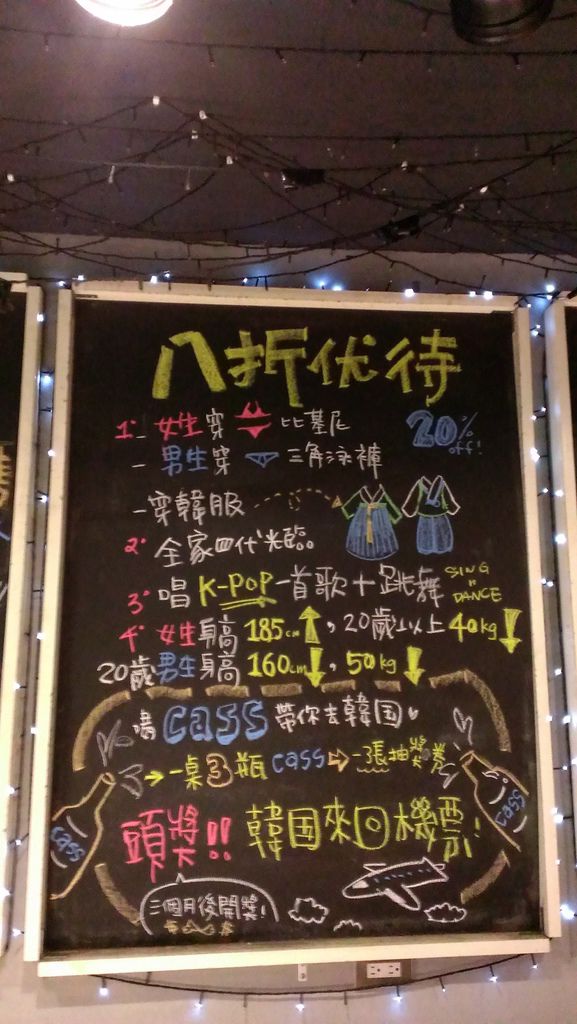 八折优待
1. - 女生穿 比基尼
20% off!
- 男生穿 三角泳褲
- 穿韓服
2. 全家四代光臨
3. 唱 K-POP 一首歌 + 跳舞 SING DANCE
4. 女生身高 185cm↑, 20歲以上 40kg↓
20歲男生身高 160cm↓, 50kg↓
喝 cass 帶你去韓国
→ 一桌3瓶 cass ⇨ 一張抽獎券
cass
cass
頭獎!! 韓国來回機票!
三個月後開獎!